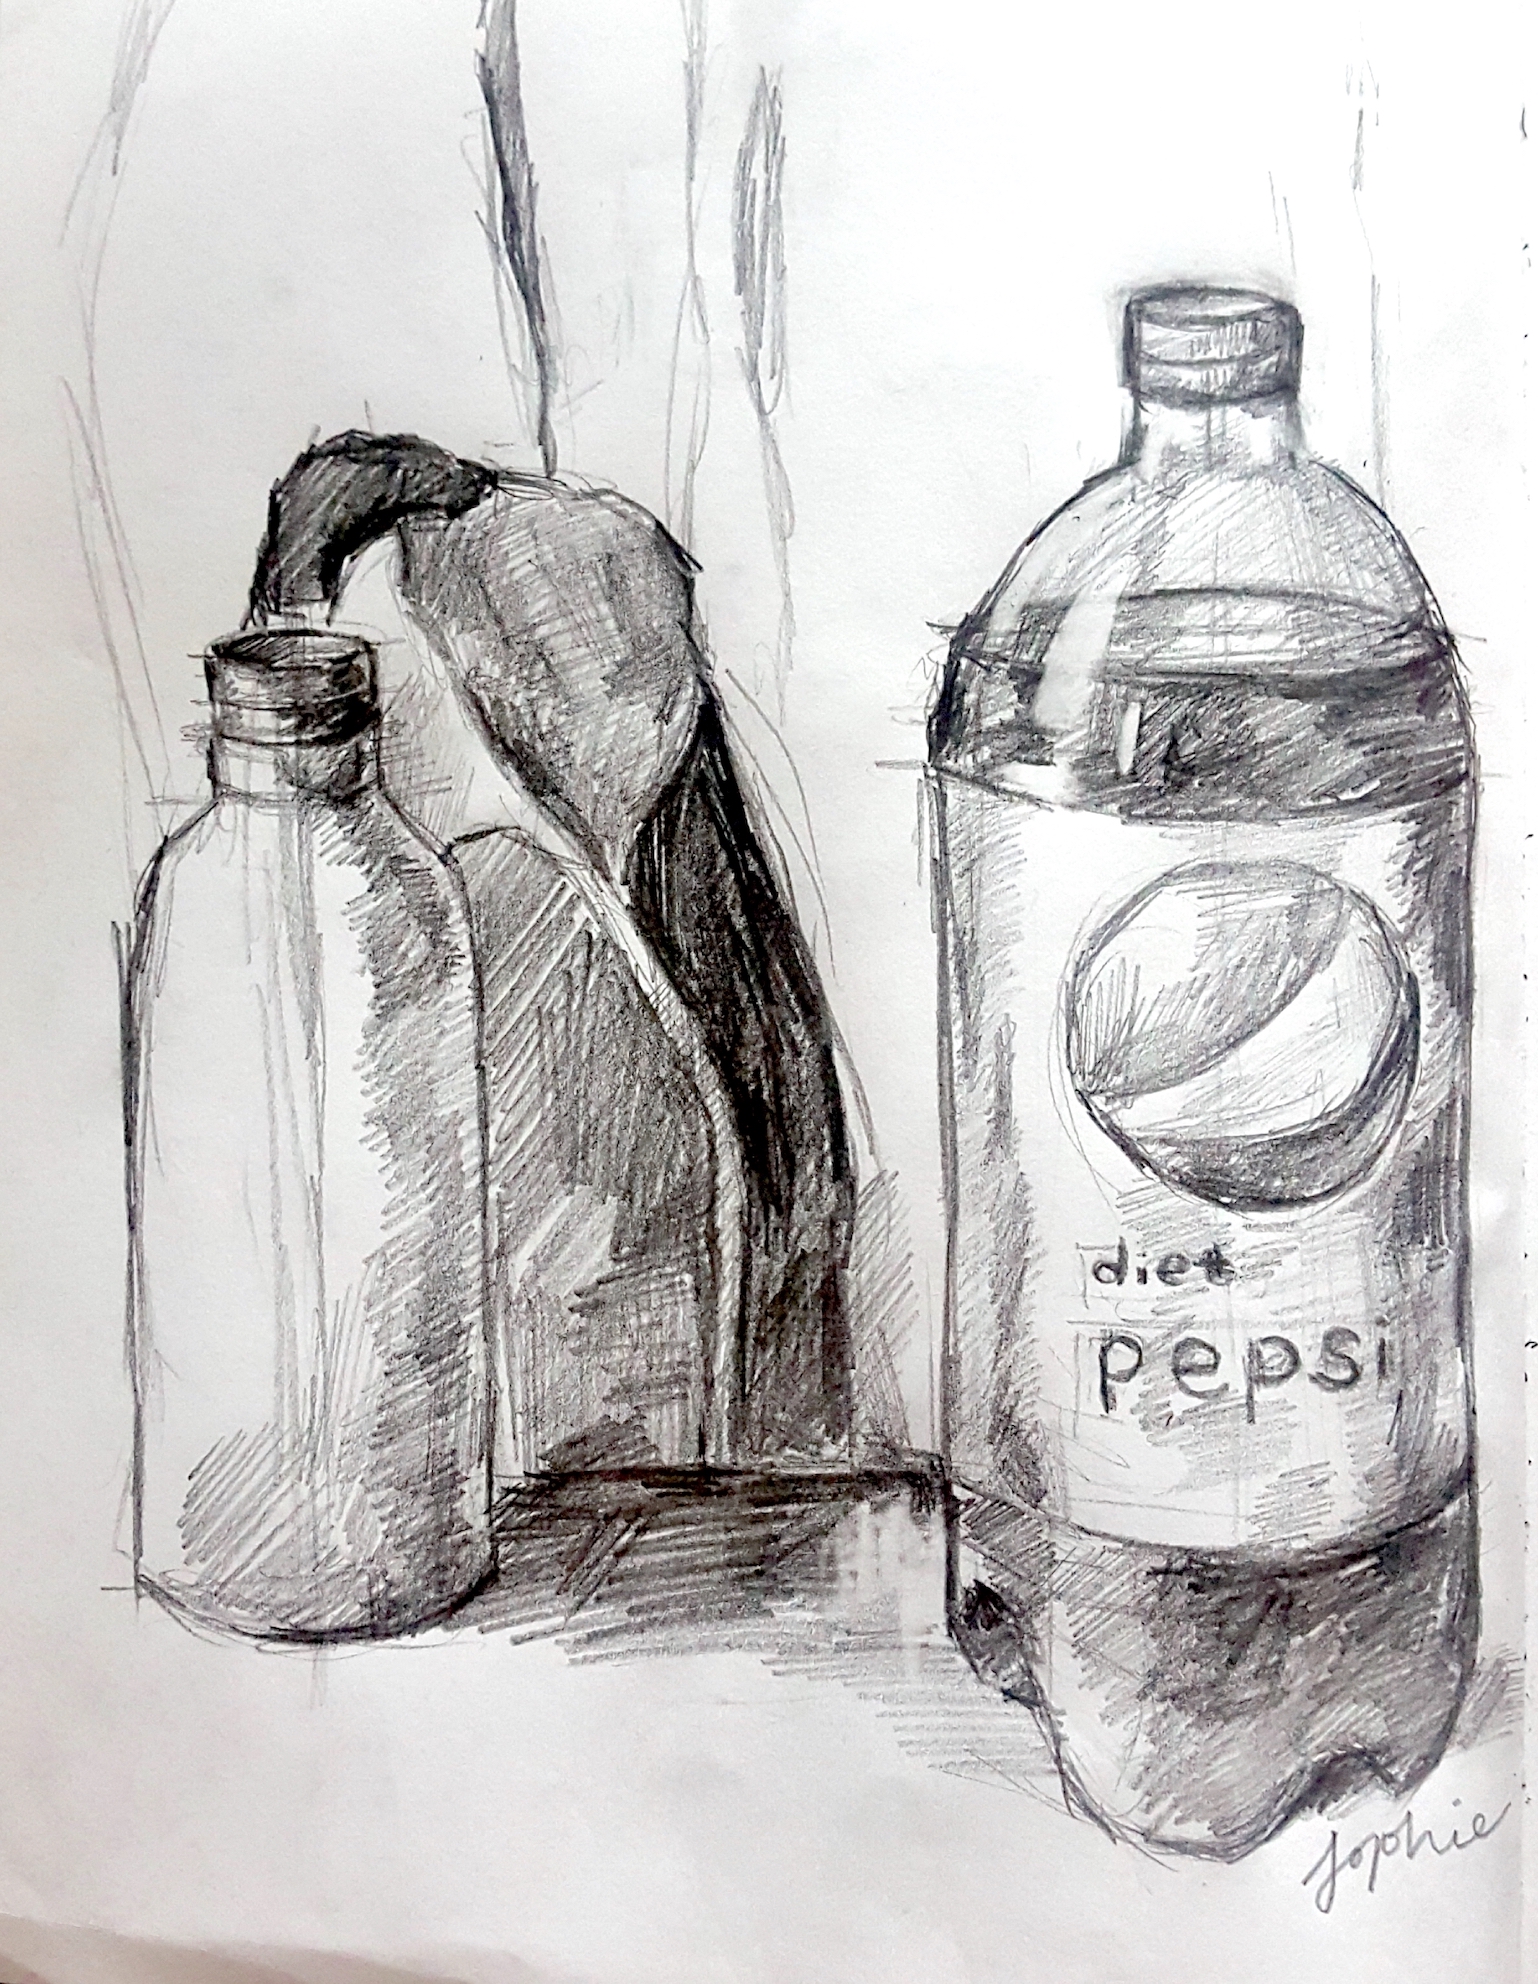 diet
pepsi
Sophie